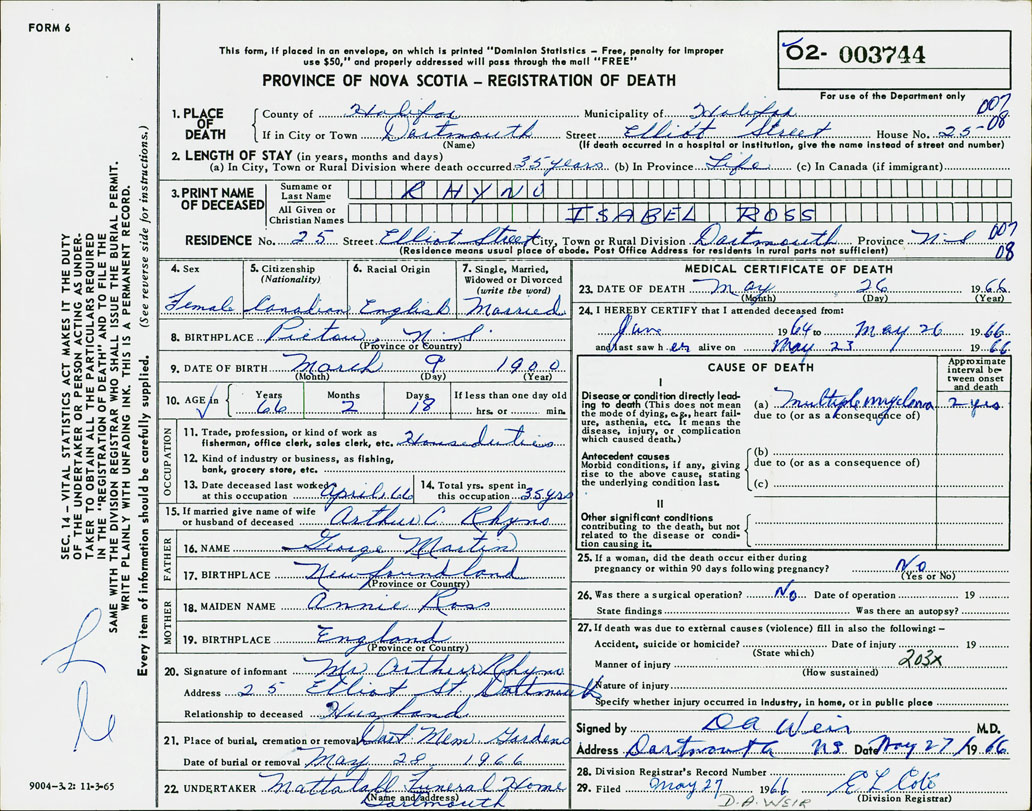 FORM 6
This form, if placed in an envelope, on which is printed "Dominion Statistics – Free, penalty for improper
use $50," and properly addressed will pass through the mail "FREE"
PROVINCE OF NOVA SCOTIA – REGISTRATION OF DEATH
02- 003744
For use of the Department only
007
08
1. PLACE OF DEATH County of Halifax Municipality of Halifax
If in City or Town Dartmouth Street Elliot Street House No. 25
(Name) (If death occurred in a hospital or institution, give the name instead of street and number)
2. LENGTH OF STAY (in years, months and days)
(a) In City, Town or Rural Division where death occurred 35 years (b) In Province Life (c) In Canada (if immigrant)
3. PRINT NAME OF DECEASED Surname or Last Name RHYNO
All Given or Christian Names ISABEL ROSS
RESIDENCE No. 25 Street Elliot Street City, Town or Rural Division Dartmouth Province N.S 007
(Residence means usual place of abode. Post Office Address for residents in rural parts not sufficient) 08
4. Sex Female
5. Citizenship (Nationality) Canadian
6. Racial Origin English
7. Single, Married, Widowed or Divorced (write the word) Married
8. BIRTHPLACE Pictou N.S
(Province or Country)
9. DATE OF BIRTH March 9 1900
(Month) (Day) (Year)
10. AGE in Years 66 Months 2 Days 18 If less than one day old hrs. or min.
OCCUPATION
11. Trade, profession, or kind of work as
fisherman, office clerk, sales clerk, etc. Houseduties
12. Kind of industry or business, as fishing,
bank, grocery store, etc.
13. Date deceased last worked at this occupation April, 66
14. Total yrs. spent in this occupation 35 yrs
15. If married give name of wife or husband of deceased Arthur C. Rhyno
FATHER
16. NAME George Martin
17. BIRTHPLACE Newfoundland
(Province or Country)
MOTHER
18. MAIDEN NAME Annie Ross
19. BIRTHPLACE England
(Province or Country)
20. Signature of informant Mr Arthur Rhyno
Address 25 Elliot St. Dartmouth
Relationship to deceased Husband
21. Place of burial, cremation or removal Dart Mem Gardens
Date of burial or removal May 28, 1966
22. UNDERTAKER Mattatall Funeral Home
(Name and address)
Dartmouth
MEDICAL CERTIFICATE OF DEATH
23. DATE OF DEATH May 26 1966
(Month) (Day) (Year)
24. I HEREBY CERTIFY that I attended deceased from:
June 1964 to May 26 1966
and last saw her alive on May 23 1966
CAUSE OF DEATH
Approximate interval between onset and death
I
Disease or condition directly leading to death (This does not mean the mode of dying, e.g., heart failure, asthenia, etc. It means the disease, injury, or complication which caused death.)
(a) Multiple myeloma 2 yrs.
due to (or as a consequence of)
Antecedent causes
Morbid conditions, if any, giving rise to the above cause, stating the underlying condition last.
(b)
due to (or as a consequence of)
(c)
II
Other significant conditions
contributing to the death, but not related to the disease or condition causing it.
25. If a woman, did the death occur either during
pregnancy or within 90 days following pregnancy? No
(Yes or No)
26. Was there a surgical operation? No Date of operation 19
State findings Was there an autopsy?
27. If death was due to external causes (violence) fill in also the following: –
Accident, suicide or homicide? Date of injury 19
(State which)
203X
Manner of injury
(How sustained)
Nature of injury
Specify whether injury occurred in industry, in home, or in public place
Signed by DA Weir M.D.
Address Dartmouth NS. Date May 27/1966
28. Division Registrar's Record Number
29. Filed May 27 1966 E L Cote
(Division Registrar)
D.A. WEIR
SEC. 14 – VITAL STATISTICS ACT MAKES IT THE DUTY
OF THE UNDERTAKER OR PERSON ACTING AS UNDER-
TAKER TO OBTAIN ALL THE PARTICULARS REQUIRED
IN THE "REGISTRATION OF DEATH" AND TO FILE THE
SAME WITH THE DIVISION REGISTRAR WHO SHALL ISSUE THE BURIAL PERMIT.
WRITE PLAINLY WITH UNFADING INK. THIS IS A PERMANENT RECORD.
Every item of information should be carefully supplied. (See reverse side for instructions.)
9004-3.2: 11-3-65